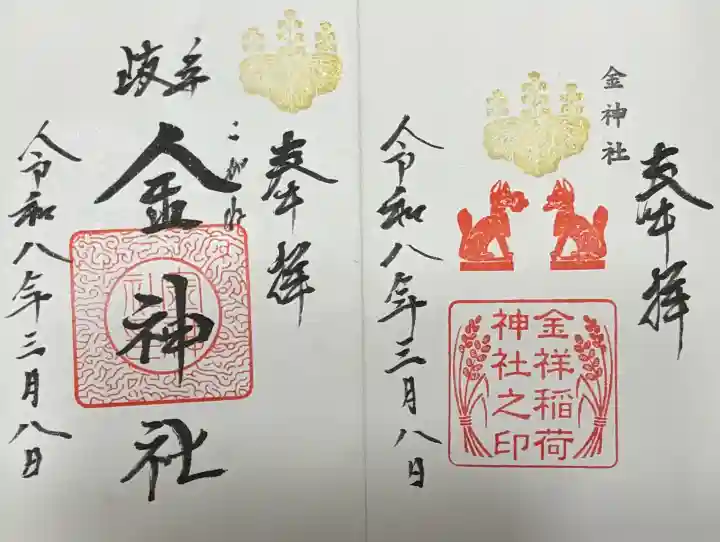 奉拝
岐阜
こがね
金神社
令和八年三月八日
奉拝
金神社
金祥稲荷
神社之印
令和八年三月八日